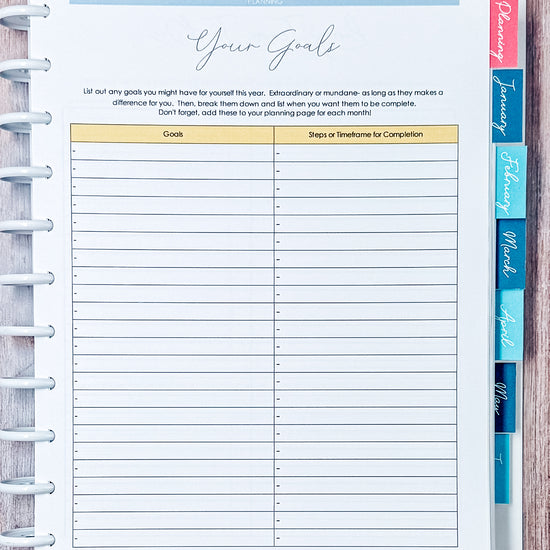 PLANNING
Your Goals
List out any goals you might have for yourself this year. Extraordinary or mundane- as long as they makes a
difference for you. Then, break them down and list when you want them to be complete.
Don't forget, add these to your planning page for each month!
Goals
Steps or Timeframe for Completion
Planning
January
February
March
April
May